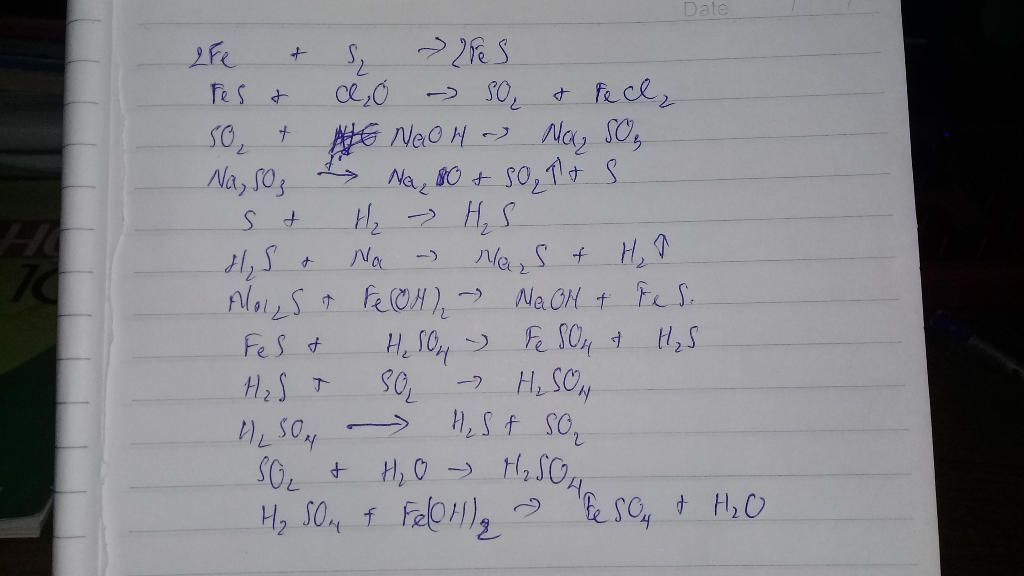 Date / /
2Fe + S₂ → 2FeS
FeS + Cl₂O → SO₂ + FeCl₂
SO₂ + NaOH → Na₂SO₃
Na₂SO₃ → Na₂O + SO₂↑ + S
S + H₂ → H₂S
H₂S + Na → Na₂S + H₂↑
Na₂S + Fe(OH)₂ → NaOH + FeS.
FeS + H₂SO₄ → FeSO₄ + H₂S
H₂S + SO₂ → H₂SO₄
H₂SO₄ → H₂S + SO₂
SO₂ + H₂O → H₂SO₄
H₂SO₄ + Fe(OH)₂ → FeSO₄ + H₂O